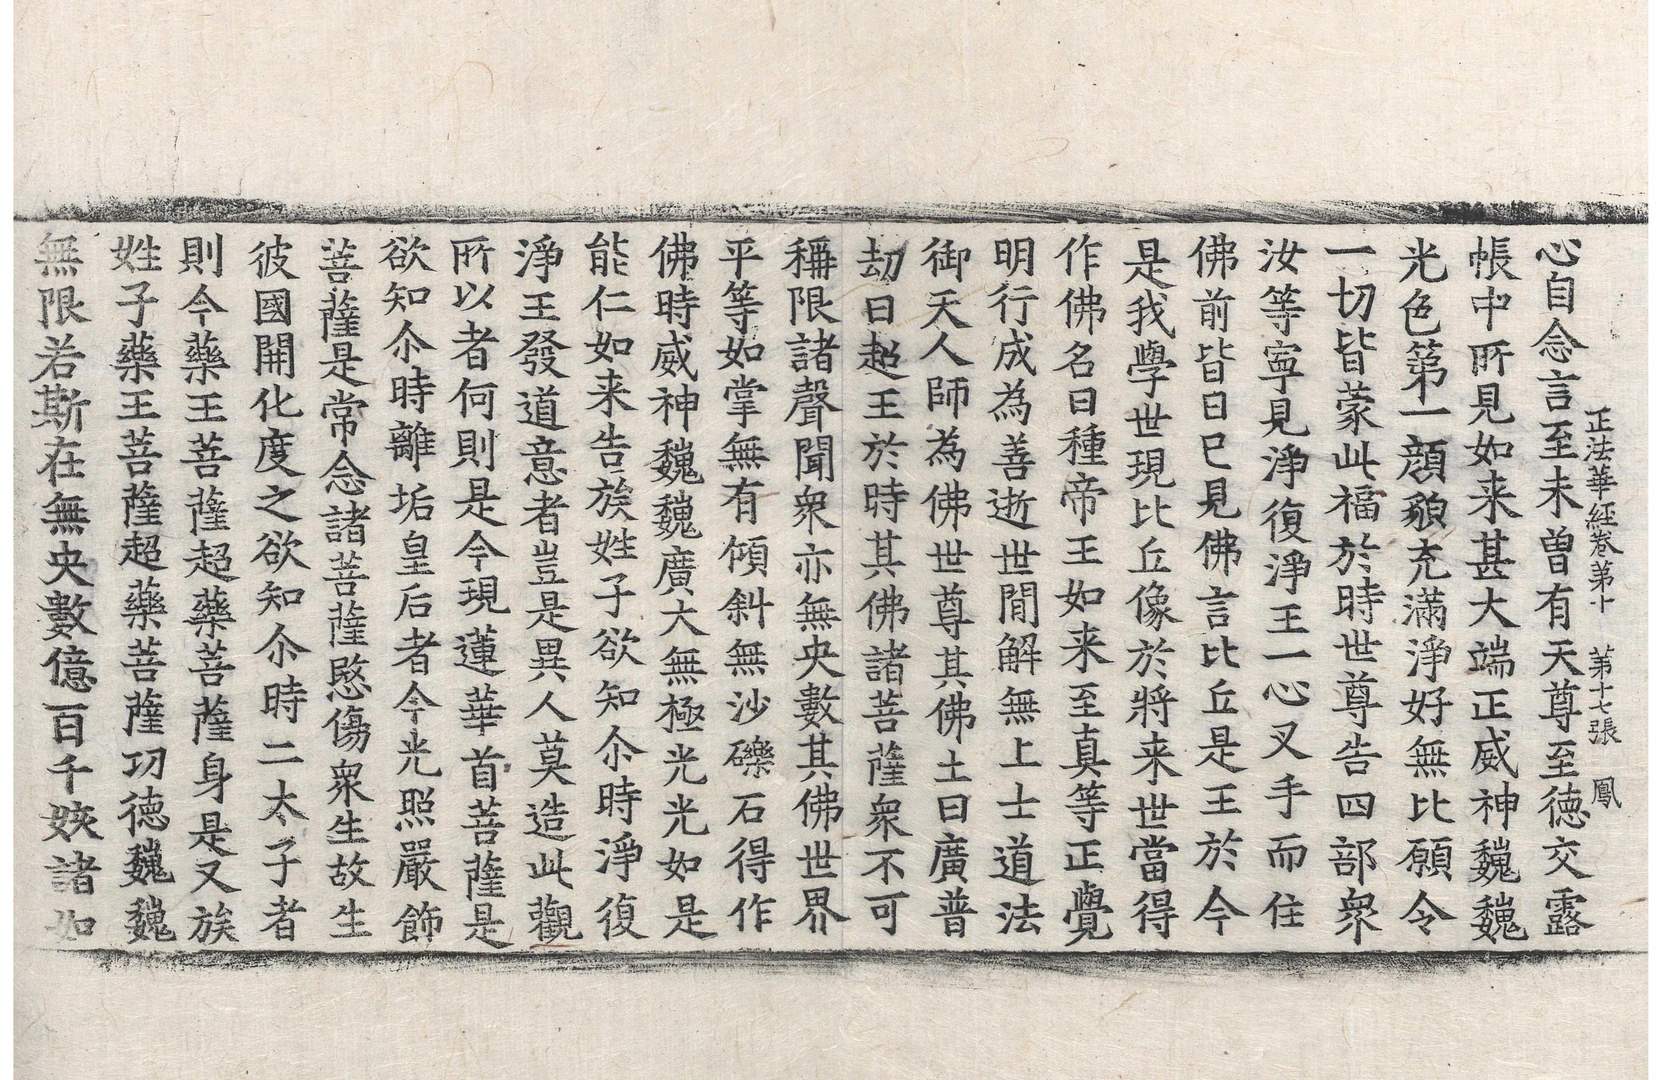 正法華經卷第十　第十七張　鳳
心自念言至未曾有天尊至德交露
帳中所見如来甚大端正威神巍巍
光色第一顔貌充滿淨好無比願令
一切皆蒙此福於時世尊告四部衆
汝等寧見淨復淨王一心叉手而住
佛前皆曰已見佛言比丘是王於今
是我學世現比丘像於將来世當得
作佛名曰種帝王如来至真等正覺
明行成為善逝世間解無上士道法
御天人師為佛世尊其佛土曰廣普
劫曰超王於時其佛諸菩薩衆不可
稱限諸聲聞衆亦無央數其佛世界
平等如掌無有傾斜無沙礫石得作
佛時威神巍巍廣大無極光光如是
能仁如来告族姓子欲知尒時淨復
淨王發道意者豈是異人莫造此觀
所以者何則是今現蓮華首菩薩是
欲知尒時離垢皇后者今光照嚴飾
菩薩是常念諸菩薩愍傷衆生故生
彼國開化度之欲知尒時二太子者
則今藥王菩薩超藥菩薩身是又族
姓子藥王菩薩超藥菩薩功德巍巍
無限若斯在無央數億百千姟諸如